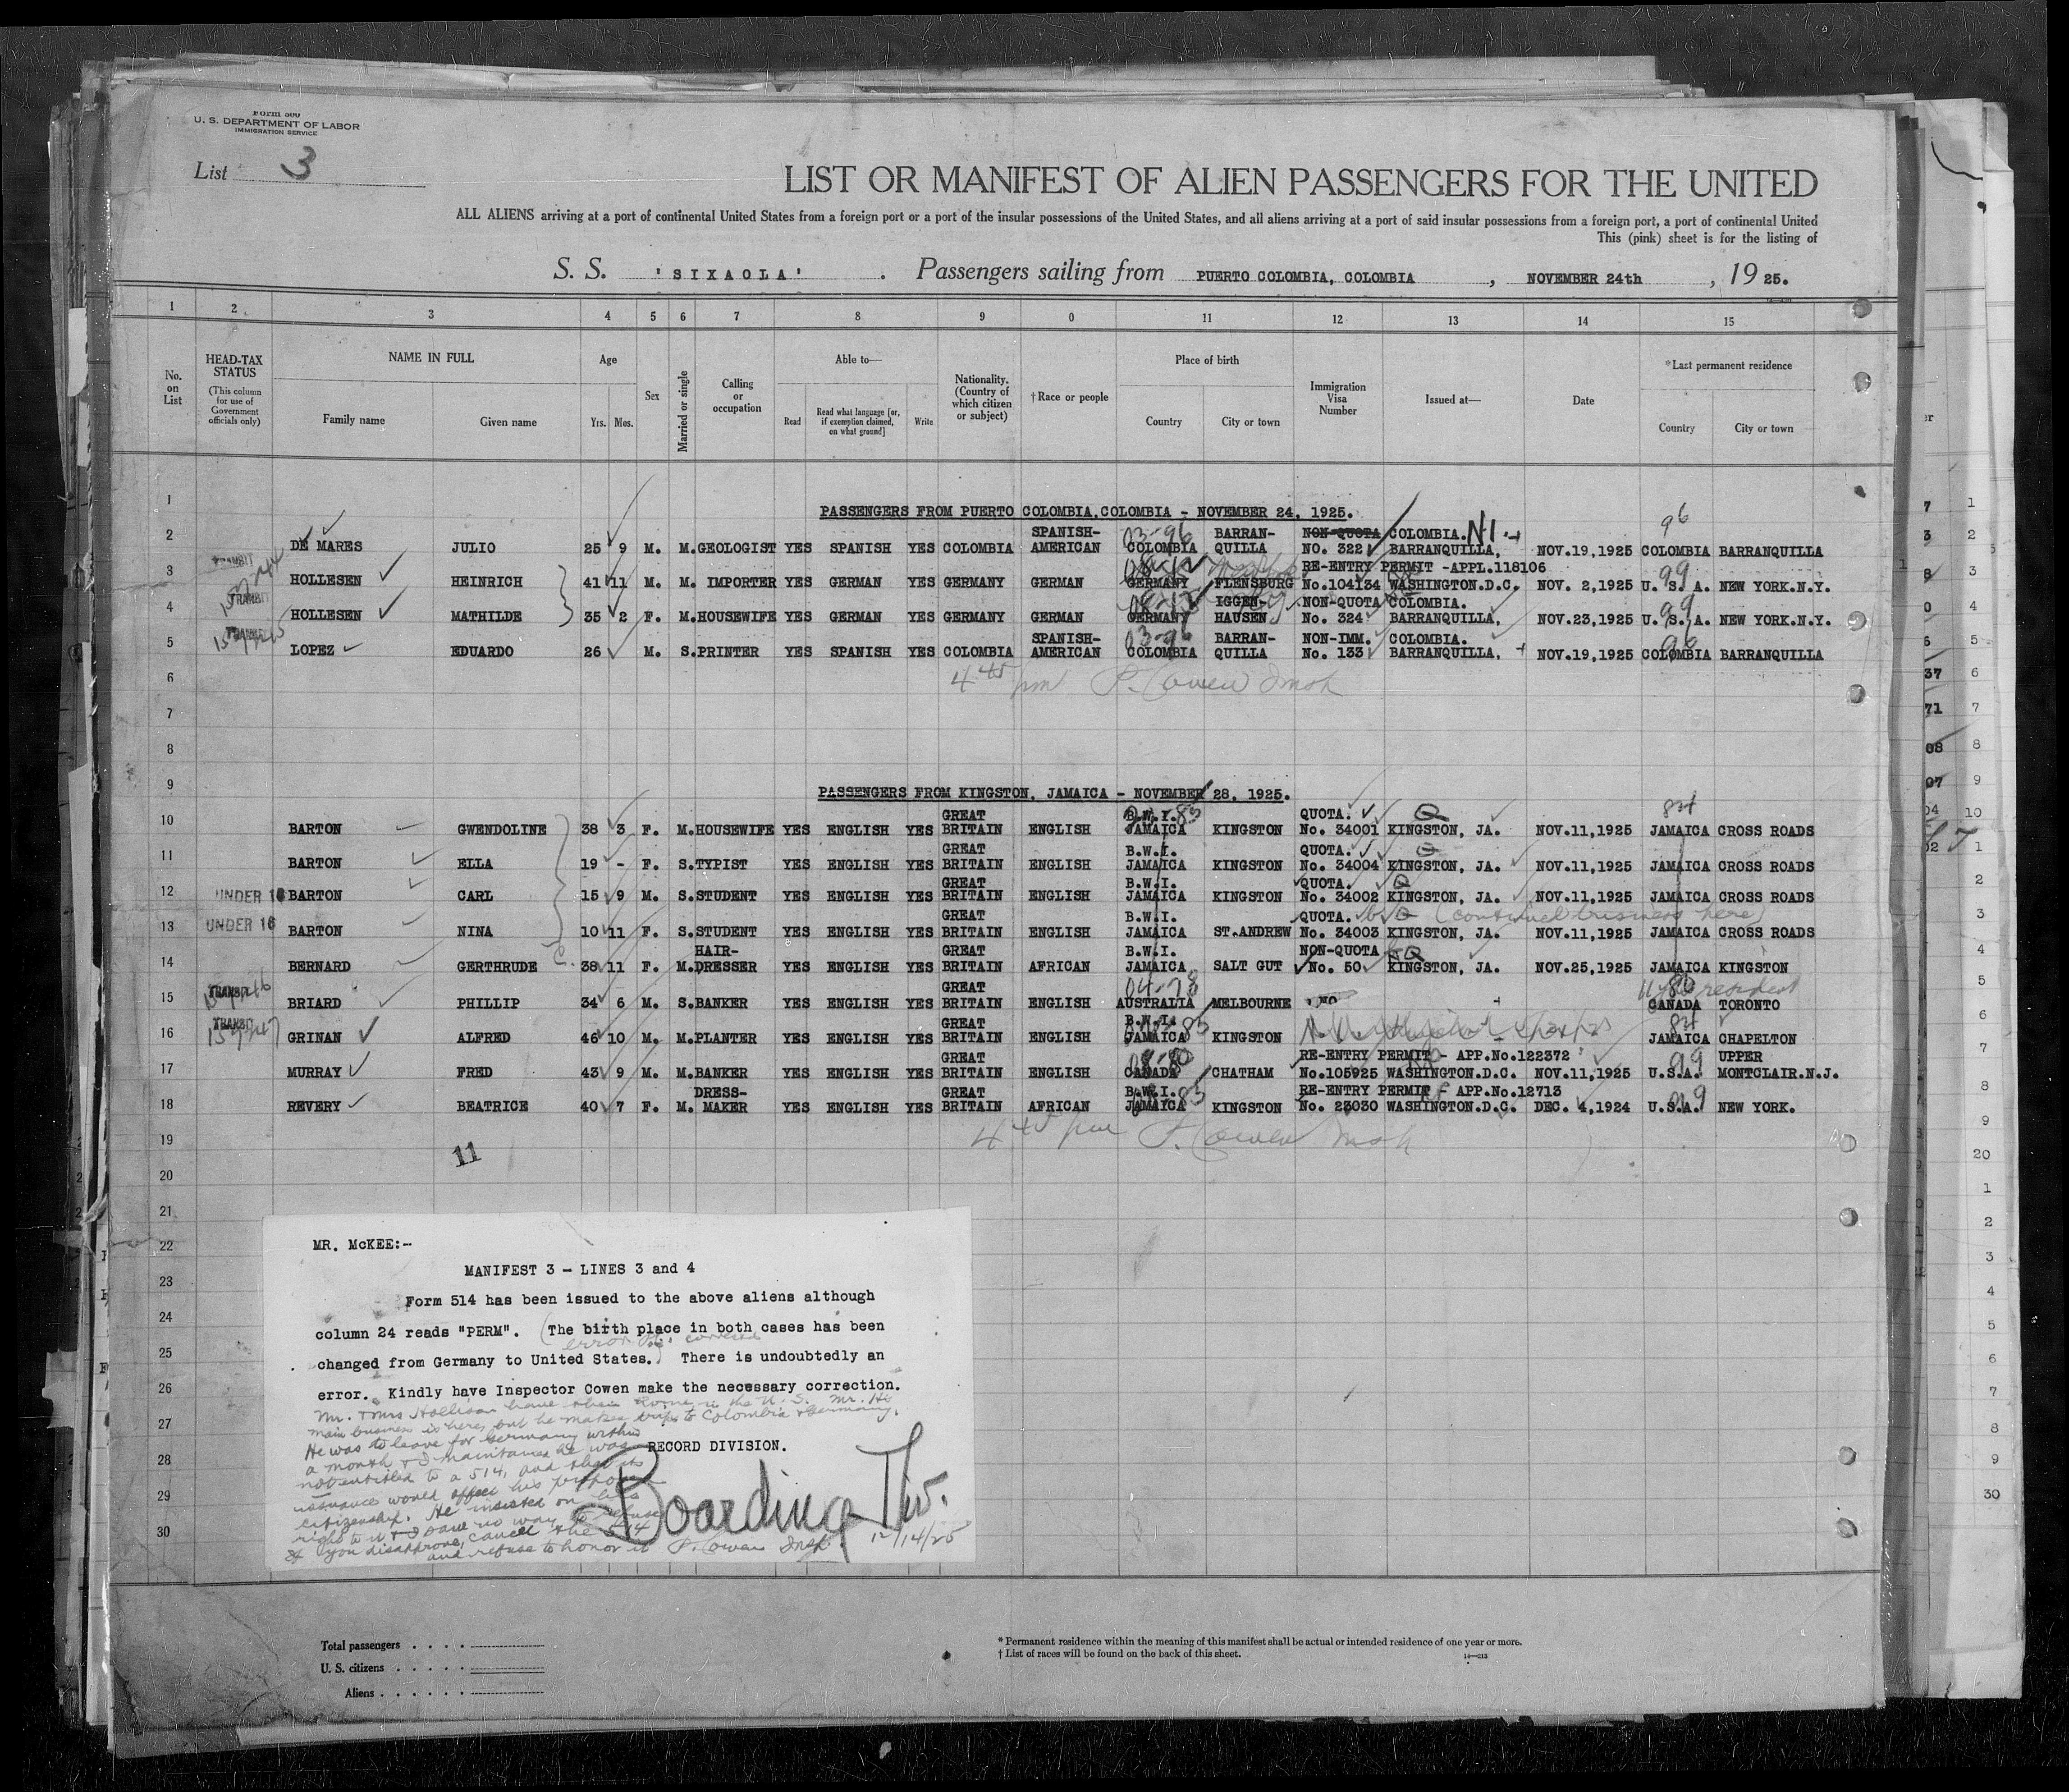 Form 500
U. S. DEPARTMENT OF LABOR
IMMIGRATION SERVICE
List 3
LIST OR MANIFEST OF ALIEN PASSENGERS FOR THE UNITED
ALL ALIENS arriving at a port of continental United States from a foreign port or a port of the insular possessions of the United States, and all aliens arriving at a port of said insular possessions from a foreign port, a port of continental United
This (pink) sheet is for the listing of
S. S. 'SIXAOLA' . Passengers sailing from PUERTO COLOMBIA, COLOMBIA , NOVEMBER 24th , 19 25.
1 2 3 4 5 6 7 8 9 0 11 12 13 14 15
No. on List
HEAD-TAX STATUS (This column for use of Government officials only)
NAME IN FULL Family name Given name
Age Yrs. Mos.
Sex
Married or single
Calling or occupation
Able to— Read Read what language [or, if exemption claimed, on what ground] Write
Nationality. (Country of which citizen or subject)
†Race or people
Place of birth Country City or town
Immigration Visa Number
Issued at—
Date
*Last permanent residence Country City or town
1 PASSENGERS FROM PUERTO COLOMBIA, COLOMBIA - NOVEMBER 24, 1925.
2 DE MARES JULIO 25 9 M. M. GEOLOGIST YES SPANISH YES COLOMBIA SPANISH-AMERICAN 03-96 COLOMBIA BARRAN-QUILLA NON-QUOTA NO. 322 COLOMBIA. NI BARRANQUILLA, NOV.19,1925 96 COLOMBIA BARRANQUILLA
3 TRANSIT HOLLESEN HEINRICH 41 11 M. M. IMPORTER YES GERMAN YES GERMANY GERMAN GERMANY FLENSBURG RE-ENTRY PERMIT -APPL.118106 No.104134 WASHINGTON.D.C. NOV. 2,1925 99 U. S. A. NEW YORK.N.Y.
4 TRANSIT HOLLESEN MATHILDE 35 2 F. M. HOUSEWIFE YES GERMAN YES GERMANY GERMAN GERMANY IGGEN-HAUSEN NON-QUOTA No. 324 COLOMBIA. BARRANQUILLA, NOV.23,1925 99 U. S. A. NEW YORK.N.Y.
5 TRANSIT LOPEZ EDUARDO 26 M. S. PRINTER YES SPANISH YES COLOMBIA SPANISH-AMERICAN 03-96 COLOMBIA BARRAN-QUILLA NON-IMM. No. 133 COLOMBIA. BARRANQUILLA. NOV.19,1925 96 COLOMBIA BARRANQUILLA
6 4 45 pm P. Cowen Insp
7
8
9 PASSENGERS FROM KINGSTON, JAMAICA - NOVEMBER 28, 1925.
10 BARTON GWENDOLINE 38 3 F. M. HOUSEWIFE YES ENGLISH YES GREAT BRITAIN ENGLISH B.W.I. 83 JAMAICA KINGSTON QUOTA. No. 34001 Q KINGSTON, JA. NOV.11,1925 84 JAMAICA CROSS ROADS
11 BARTON ELLA 19 - F. S. TYPIST YES ENGLISH YES GREAT BRITAIN ENGLISH B.W.I. JAMAICA KINGSTON QUOTA. No. 34004 Q KINGSTON, JA. NOV.11,1925 JAMAICA CROSS ROADS
12 UNDER 16 BARTON CARL 15 9 M. S. STUDENT YES ENGLISH YES GREAT BRITAIN ENGLISH B.W.I. JAMAICA KINGSTON QUOTA. No. 34002 Q KINGSTON, JA. NOV.11,1925 JAMAICA CROSS ROADS
13 UNDER 16 BARTON NINA 10 11 F. S. STUDENT YES ENGLISH YES GREAT BRITAIN ENGLISH B.W.I. JAMAICA ST.ANDREW QUOTA. No. 34003 Q KINGSTON, JA. NOV.11,1925 JAMAICA CROSS ROADS
14 BERNARD GERTHRUDE 38 11 F. M. HAIR-DRESSER YES ENGLISH YES GREAT BRITAIN AFRICAN B.W.I. JAMAICA SALT GUT NON-QUOTA No. 50 Q KINGSTON, JA. NOV.25,1925 JAMAICA KINGSTON
15 TRANSIT BRIARD PHILLIP 34 6 M. S. BANKER YES ENGLISH YES GREAT BRITAIN ENGLISH 04-78 AUSTRALIA MELBOURNE resident CANADA TORONTO
16 TRANSIT GRINAN ALFRED 46 10 M. M. PLANTER YES ENGLISH YES GREAT BRITAIN ENGLISH B.W.I. 83 JAMAICA KINGSTON 84 JAMAICA CHAPELTON
17 MURRAY FRED 43 9 M. M. BANKER YES ENGLISH YES GREAT BRITAIN ENGLISH 08-80 CANADA CHATHAM RE-ENTRY PERMIT - APP.No.122372 No.105925 WASHINGTON.D.C. NOV.11,1925 99 U.S.A. UPPER MONTCLAIR.N.J.
18 REVERY BEATRICE 40 7 F. M. DRESS-MAKER YES ENGLISH YES GREAT BRITAIN AFRICAN B.W.I. 83 JAMAICA KINGSTON RE-ENTRY PERMIT - APP.No.12713 No. 23030 WASHINGTON.D.C. DEC. 4,1924 99 U.S.A. NEW YORK.
19 4 45 pm P. Cowen Insp
11
20
21
22
23
24
25
26
27
28
29
30
MR. McKEE:-
MANIFEST 3 - LINES 3 and 4
Form 514 has been issued to the above aliens although
column 24 reads "PERM". (The birth place in both cases has been
changed from Germany to United States.) There is undoubtedly an
error. Kindly have Inspector Cowen make the necessary correction.
Mr. & Mrs Hollisen have their home in the U. S. Mr. H's
main business is here, but he makes trips to Colombia & Germany.
He was to leave for Germany within
a month & I maintained he was
not entitled to a 514, and that its
issuance would affect his
citizenship. He insisted on his
right to it & I saw no way to refuse
If you disapprove, cancel the 514
and refuse to honor it P. Cowen Insp.
RECORD DIVISION.
Boarding Div.
12/14/25
Total passengers
U. S. citizens
Aliens
* Permanent residence within the meaning of this manifest shall be actual or intended residence of one year or more.
† List of races will be found on the back of this sheet.
14—213